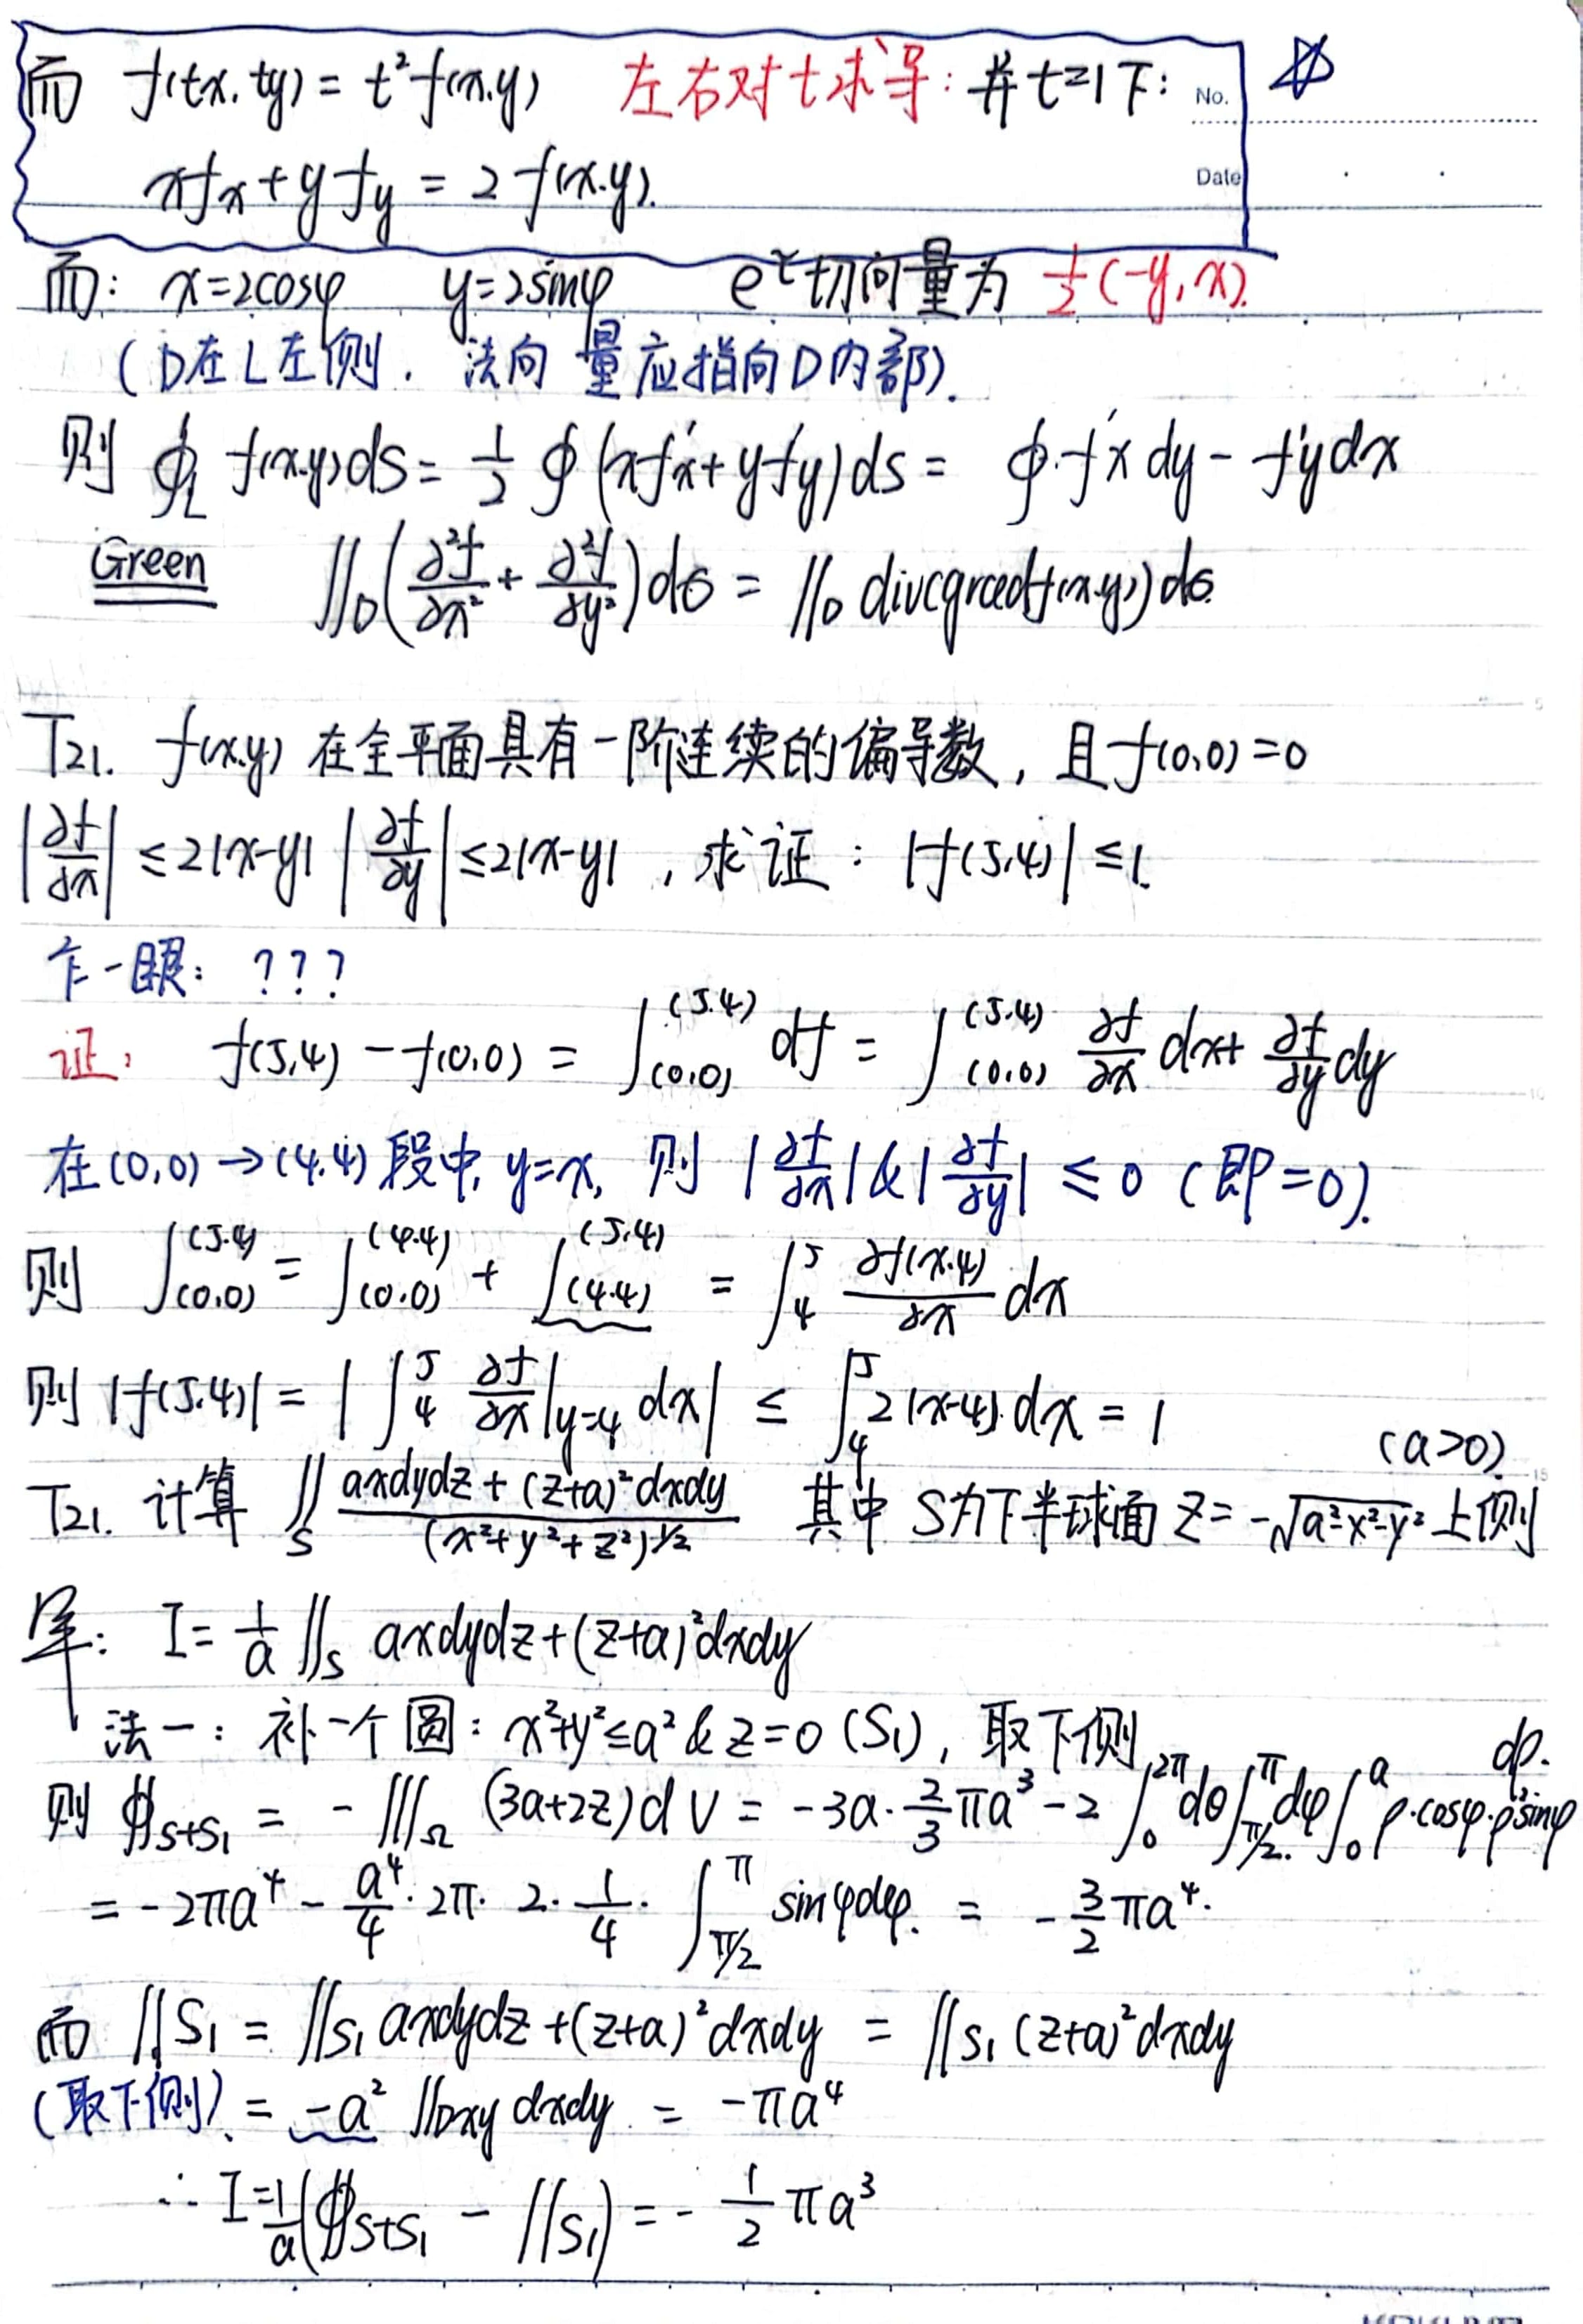 而 f(tx.ty) = t²f(x.y) 左右对t求导: 并t=1下: No.
xfx + yfy = 2f(x.y). Date
而: x=2cosφ y=2sinφ e^τ切向量为 ½(-y,x).
(D在L左侧. 法向量应指向D内部).
则 ∮_L f(x.y)ds = ½∮(xf'x+yf'y)ds = ∮f'x dy - f'y dx
Green ∬_D(∂²f/∂x² + ∂²f/∂y²)dσ = ∬_D div(gradf(x.y))dσ.
T21. f(x.y) 在全平面具有一阶连续的偏导数, 且f(0,0)=0
|∂f/∂x| ≤2|x-y| |∂f/∂y| ≤2|x-y| , 求证: |f(5,4)| ≤1.
乍一眼: ???
证: f(5,4) - f(0,0) = ∫_(0,0)^(5.4) df = ∫_(0,0)^(5.4) ∂f/∂x dx + ∂f/∂y dy
在(0,0)→(4.4)段中, y=x, 则 |∂f/∂x| & |∂f/∂y| ≤ 0 (即=0).
则 ∫_(0,0)^(5.4) = ∫_(0.0)^(4.4) + ∫_(4.4)^(5,4) = ∫_4^5 ∂f(x.4)/∂x dx
则 |f(5.4)| = |∫_4^5 ∂f/∂x|_y=4 dx| ≤ ∫_4^5 2|x-4|dx = 1
(a>0)
T21. 计算 ∬_S (axdydz + (z+a)²dxdy)/(x²+y²+z²)^½ 其中 S为下半球面 z=-√(a²-x²-y²) 上侧
解: I = 1/a ∬_S axdydz + (z+a)²dxdy
法一: 补一个圆: x²+y²≤a² & z=0 (S₁), 取下侧
则 ∯_S+S₁ = -∭_Ω (3a+2z)dV = -3a·⅔πa³ - 2∫_0^2π dθ∫_π/2^π dφ∫_0^a ρ·cosφ·ρ²sinφ dρ.
= -2πa⁴ - a⁴/4·2π·2·¼·∫_π/2^π sinφdφ. = -3/2 πa⁴.
而 ∬S₁ = ∬_S₁ axdydz + (z+a)²dxdy = ∬_S₁ (z+a)²dxdy
(取下侧) = -a² ∬_Dxy dxdy = -πa⁴
∴ I = 1/a(∯_S+S₁ - ∬_S₁) = -½πa³